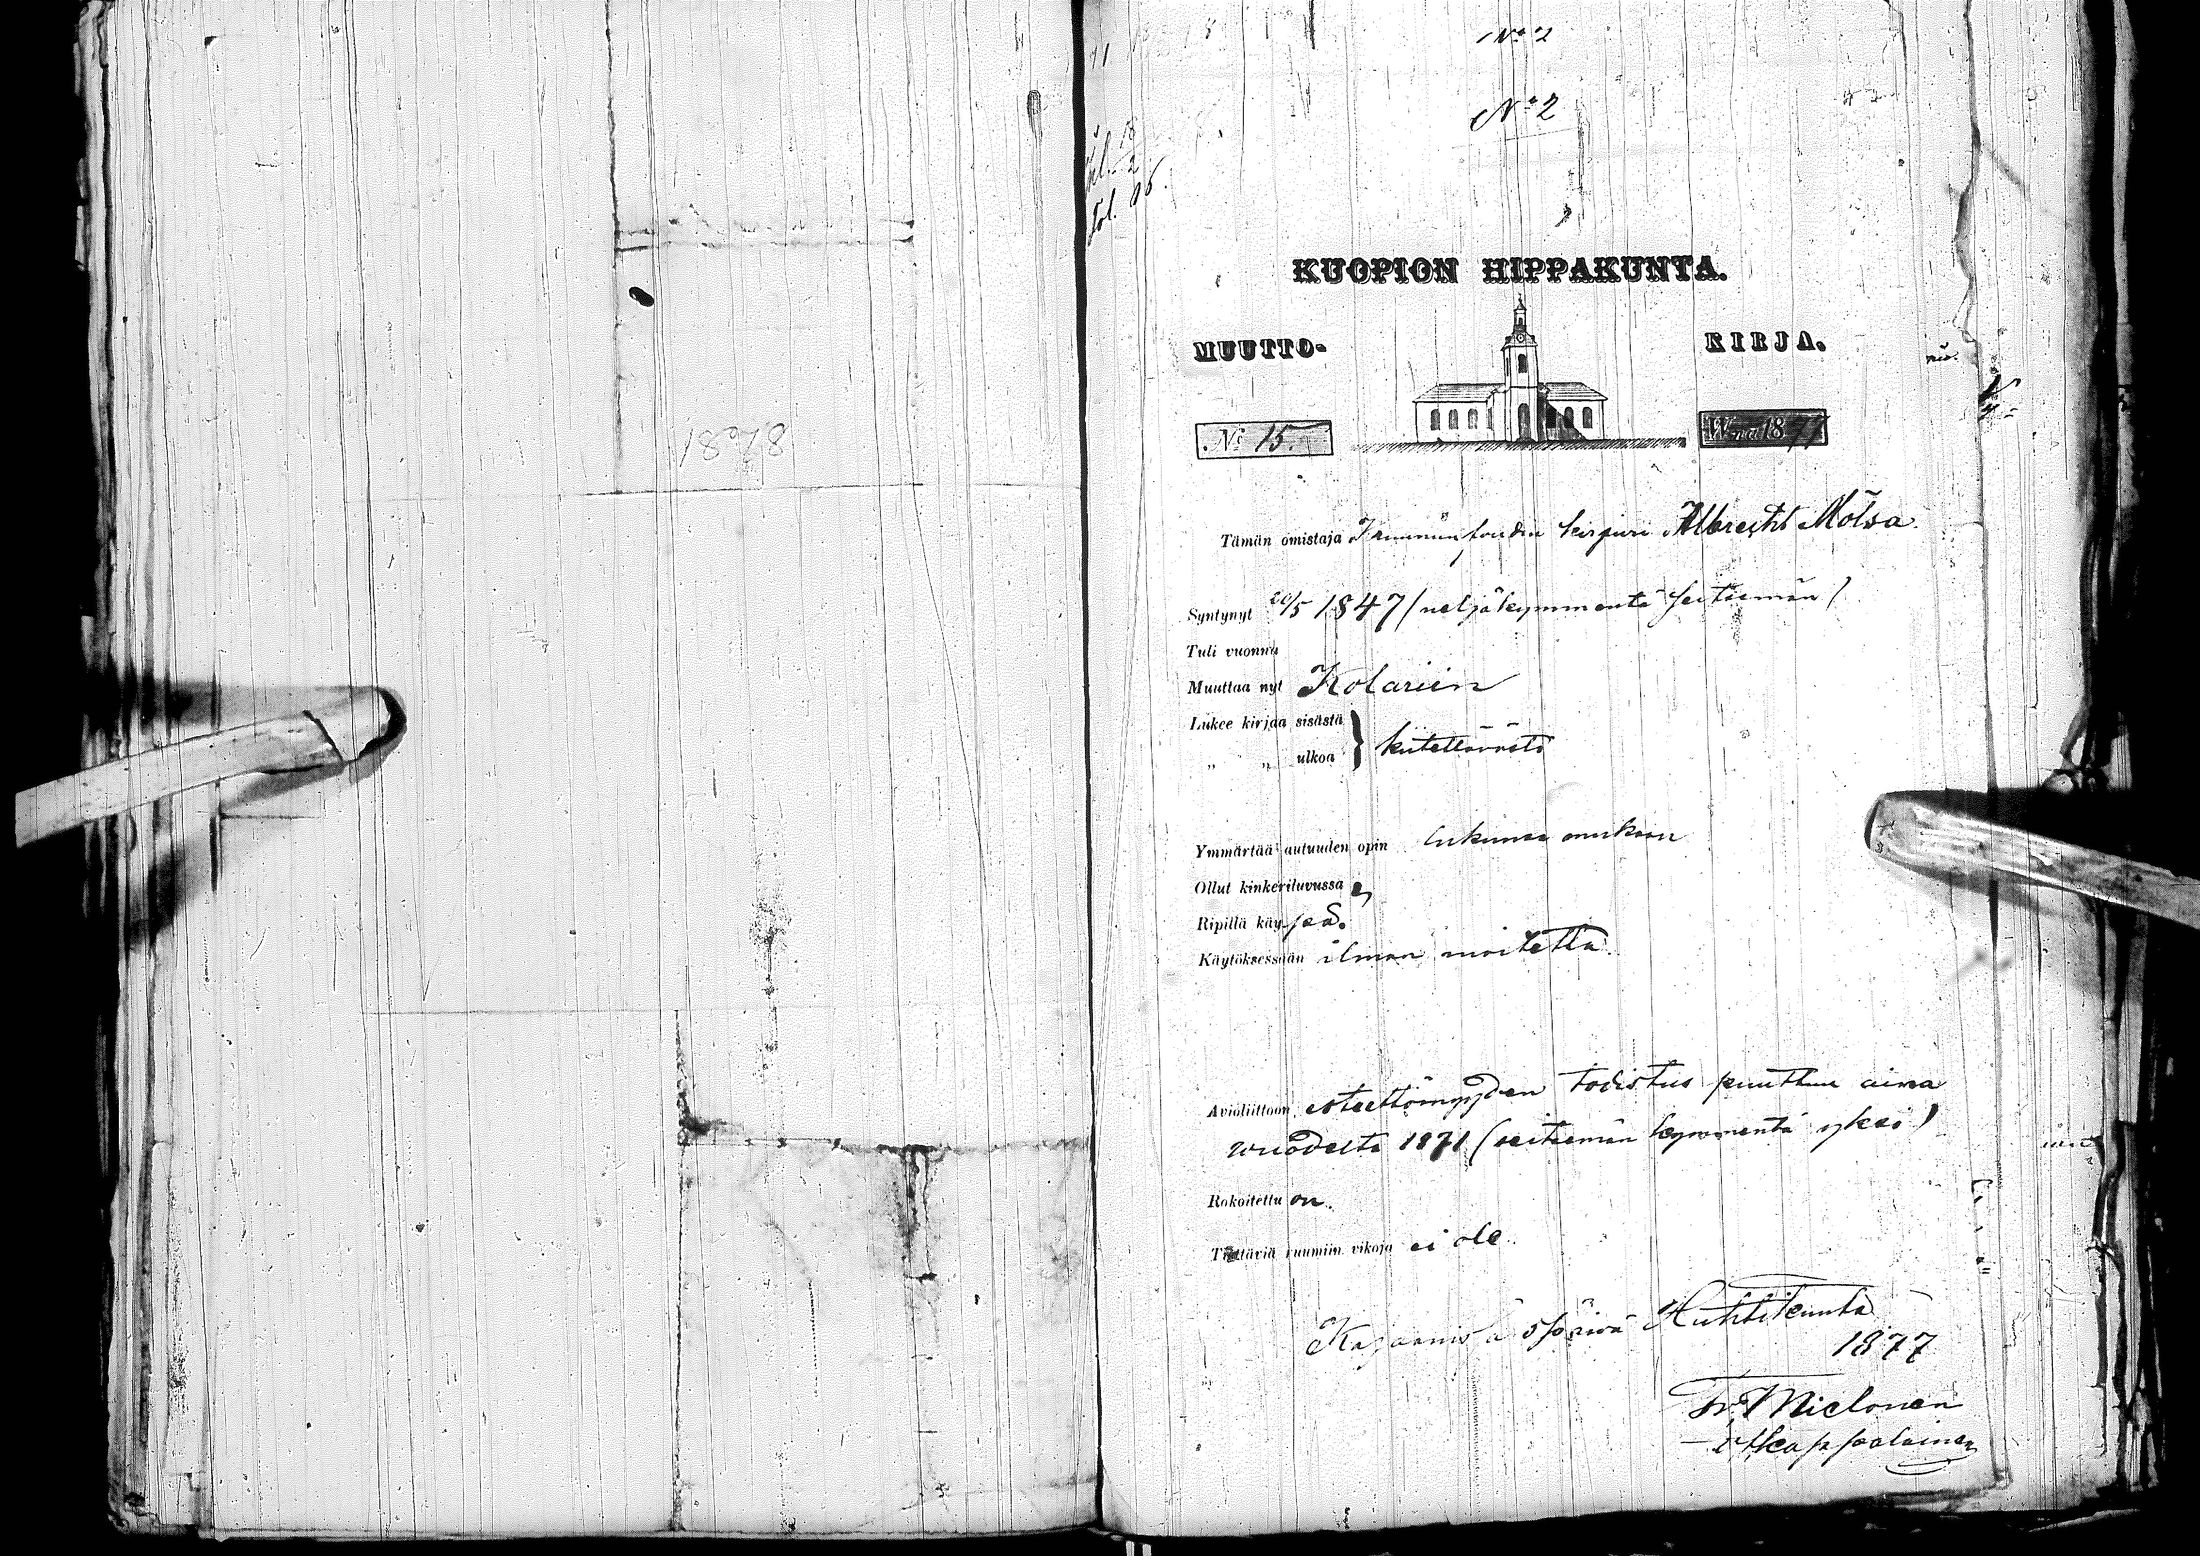 No 2
No 2
fol. 96.
KUOPION HIPPAKUNTA.
MUUTTO-
KIRJA.
No 15.
W-na 1877
Tämän omistaja Kruununfoudin kirjuri Albrecht Mölsa.
Syntynyt 20/5 1847 (neljäkymmentä seitsemän)
Tuli vuonna
Muuttaa nyt Kolariin
Lukee kirjaa sisästä
„ „ ulkoa } kiitettävästi
Ymmärtää autuuden opin lukunsa mukaan
Ollut kinkeriluvussa
Ripillä käypää.
Käytöksessään ilman moitetta.
Avioliittoon esteettömyyden todistus puuttuu aina
wuodesta 1871 (seitsemän kymmentä yksi)
Rokoitettu on.
Tiettäviä ruumiin vikoja ei ole.
Kajaanissa 5 päivä Huhtikuuta
1877
Fr. Mielonen
v. t. kappalainen